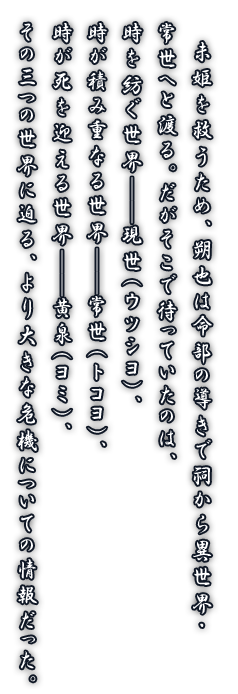 未姫を救うため、朔也は令部の導きで祠から異世界・
常世へと渡る。だがそこで待っていたのは、
時を紡ぐ世界――現世（ウツシヨ）、
時が積み重なる世界――常世（トコヨ）、
時が死を迎える世界――黄泉（ヨミ）、
その三つの世界に迫る、より大きな危機についての情報だった。